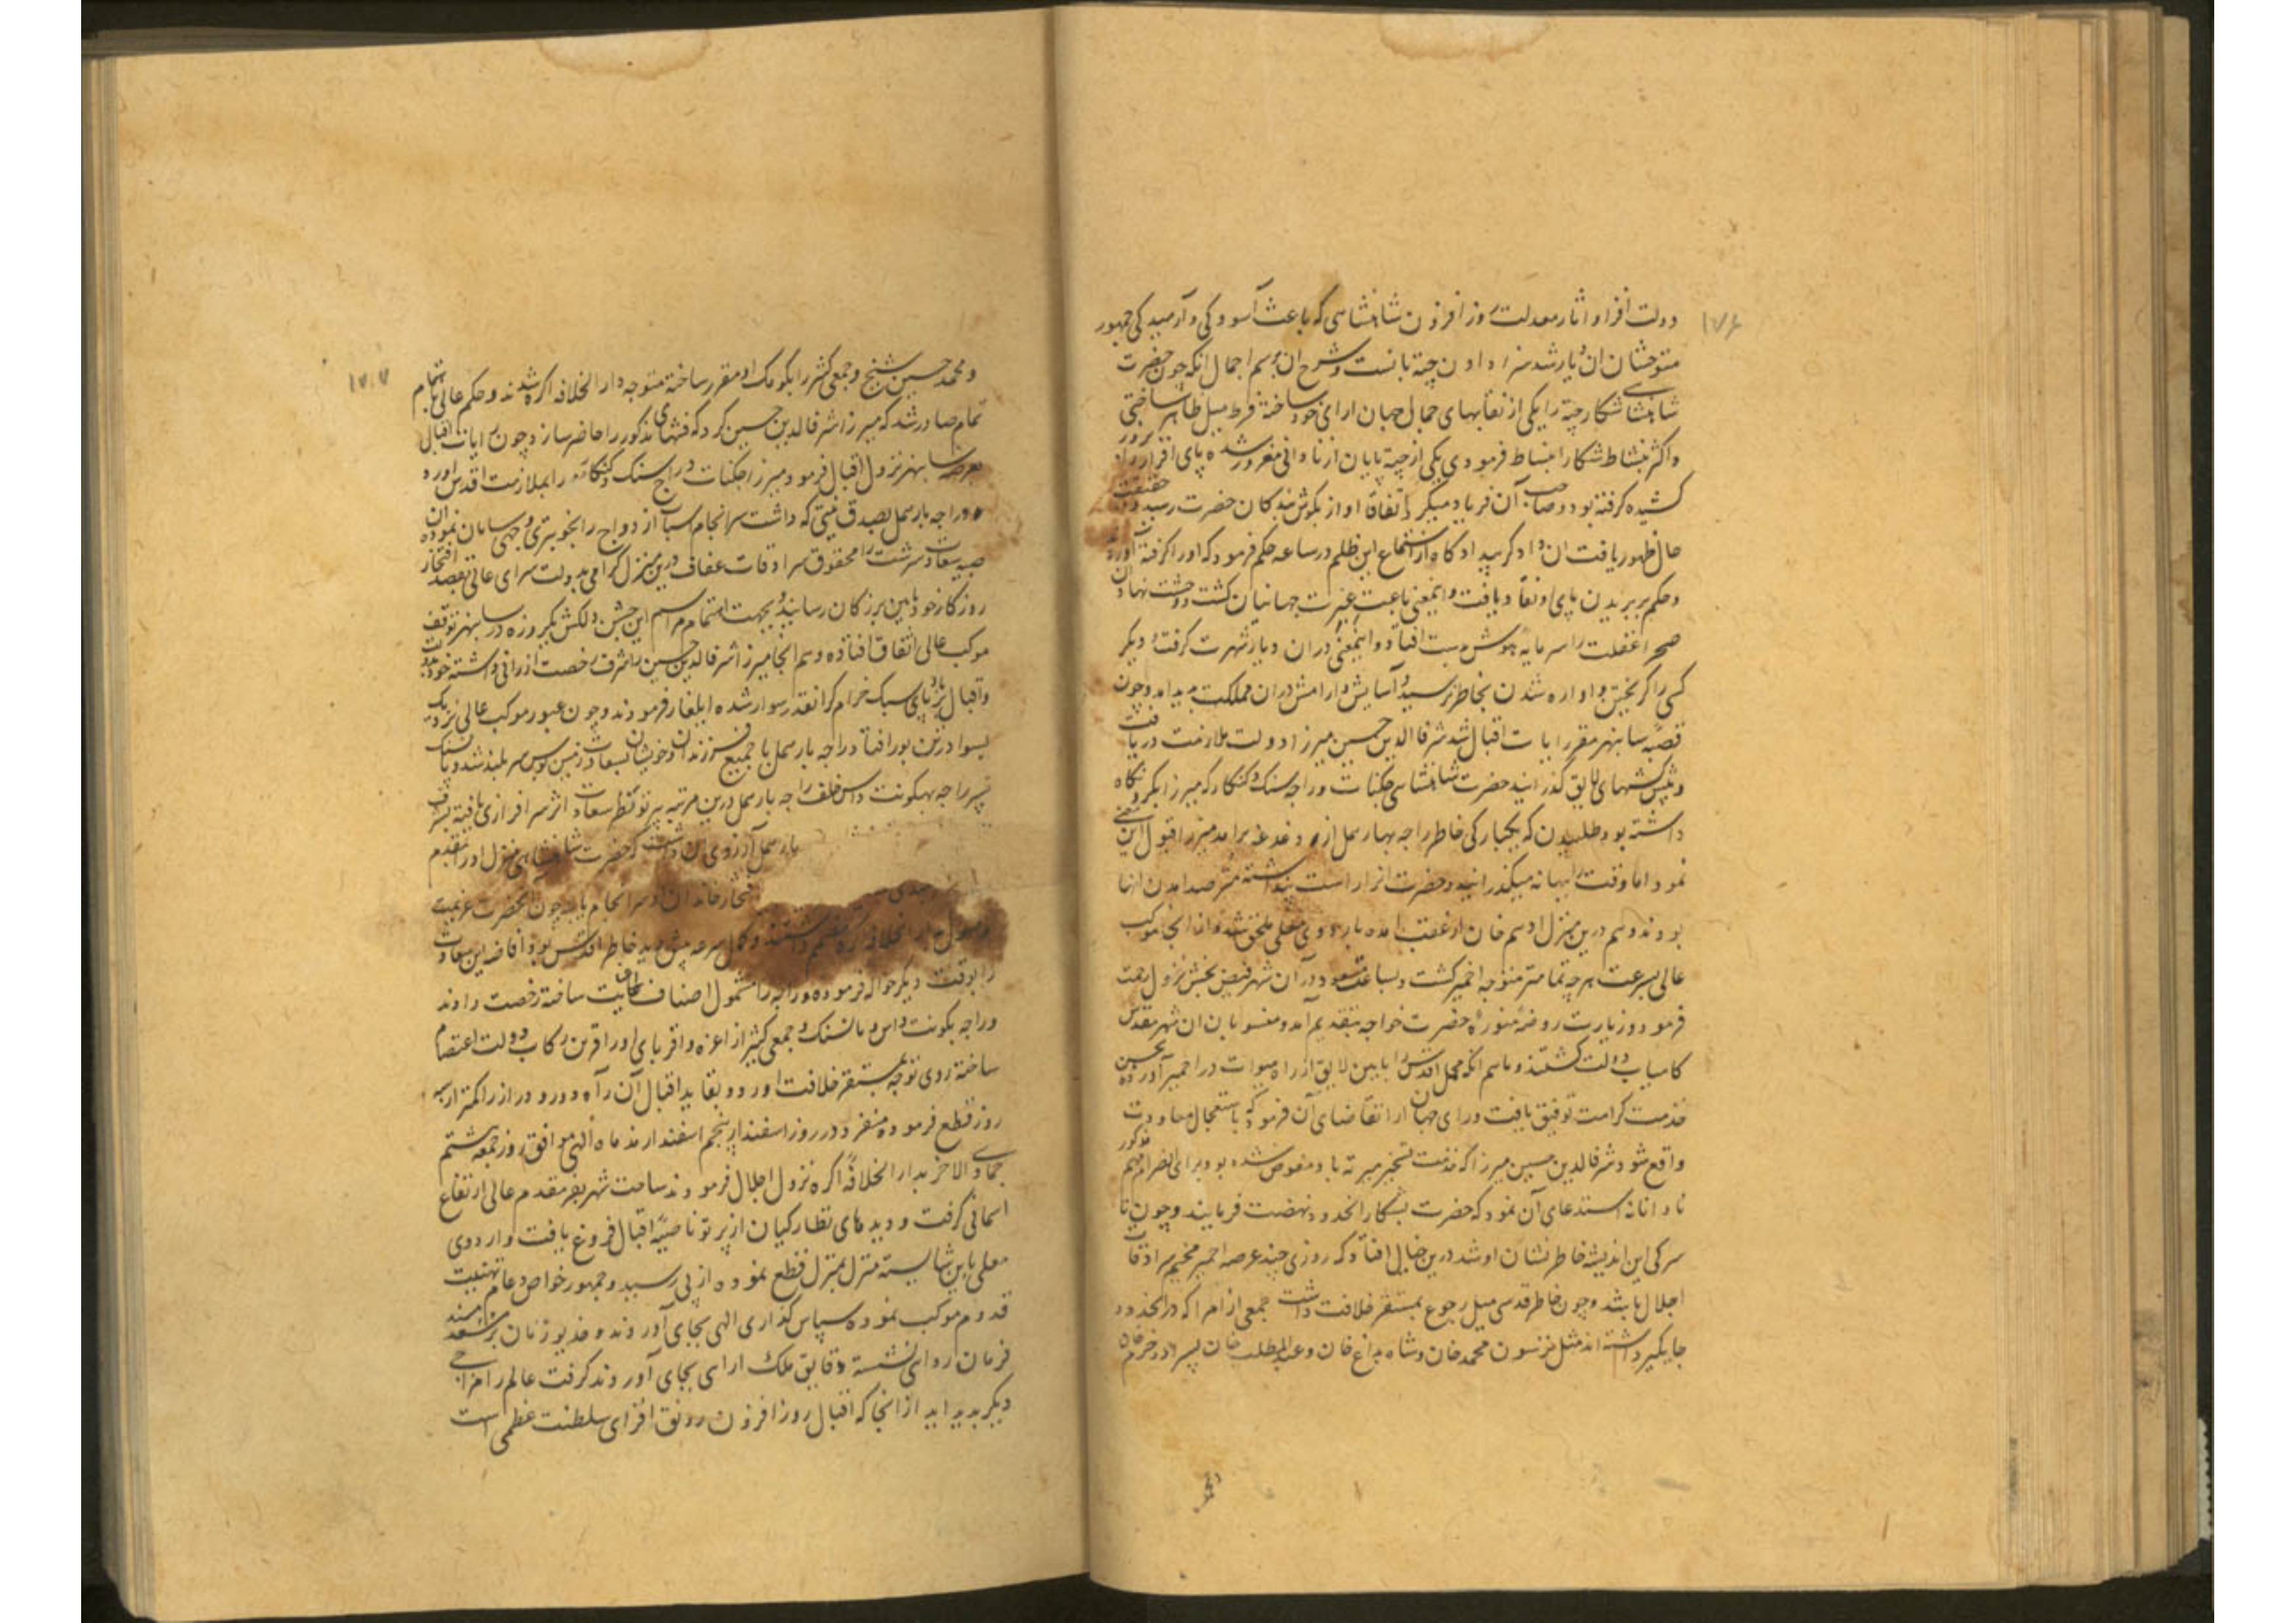 ۱۷۶
دولت افزا و اثار معدلت روز افزون شاهنشاهی که باعث آسودکی و آرمیدکی جمهور
متوحشان ان دیار شد سزا دادن چیته بانست و شرح ان برسم اجمال انکه چون حضرت
شاهنشاهی شکار چیته را یکی از نقابهای جمال جهان ارای خود ساخته فرط میل ظاهر ساختی
و اکثر بنشاط شکار انبساط فرمودی یکی از چیته پایان از نادانی مغرور شده پای افزار
کشیده کرفته بود و صاحب آن فریاد میکرد اتفاقا اواز بکوش بندکان حضرت رسید و چون حقیقت
حال ظهور یافت ان دادکر بیدادکاه از استماع این ظلم در ساعه حکم فرمود که او را کرفته آوردند
و حکم بر بریدن پای او نفاد یافت و اینمعنی باعث عبرت جهانیان کشت و وحشت نهادان
صحرا غفلت را سرمایه هوش بدست افتاد و اینمعنی در ان دیار شهرت کرفت و دیکر
کسی را کریختن و اواره شدن بخاطر نرسید و آسایش و ارامش در ان مملکت پدید امد و چون
قصبه سابنهر مقر رایات اقبال شد شرفالدین حسین میرزا دولت ملازمت دریافت
و پیشکشهای لایق کذرانید حضرت شاهنشاهی جکنات و راجسنک و کنکار که میرزا بکرو نکاه
داشته بود طلبیدن که یکبارکی خاطر راجه بهارمل از دغدغه براید میرزا قبول این معنی
نمود اما وقت را ببهانه میکذرانید و حضرت انرا راست پنداشته مترصد امدن انها
بودند و هم درین منزل ادهم خان از عقب امده باردوی معلی ملحق شد و از انجا موکب
عالی بسرعت هرچه تمامتر متوجه اجمیر کشت و بساعت مسعود در آن شهر فیض بخش نزول رحمت
فرمود و زیارت روضه منوره حضرت خواجه بتقدیم آمد و منسوبان ان شهر مقدس
کامیاب دولت کشتند و ماهم انکه محمل اقدس را بایین لایق از راه میوات در اجمیر آورده بحسن
خدمت کرامت توفیق یافت و رای جهان ارا تقاضای آن فرمود که باستعجال معاودت
واقع شود شرفالدین حسین میرزا که خدمت تسخیر میرته باو مفوض شده بود برای انصرام مهم مذکور
نادانانه استدعای آن نمود که حضرت بشکار انحدود نهضت فرمایند و چون نا
سرکی این اندیشه خاطر نشان او شد درین خیال افتاد که روزی چند عرصه اجمیر مخیم سرادقات
اجلال باشد و چون خاطر قدسی میل رجوع بمستقر خلافت داشت جمعی از امرا که در انحدود
جایکیر داشته اند مثل ترسون محمد خان و شاه بداغ خان و عبدالمطلب خان پسر او و خرم خان
و محمد
۱۷۷
و محمد حسین شیخ و جمعی کثیر را بکومک او مقرر ساخته متوجه دار الخلافه اکره شدند و حکم عالی باهتمام
تمام صادر شد که میرزا شرفالدین حسین کرد که فتهای مذکور را حاضر سازد چون رایات اقبال
بعرصه سابنهر نزول اقبال فرمود میرزا جکنات و راجسنک و کنکار را بملازمت اقدس اورد
و راجه بارهمل بصدق نیتی که داشت سرانجام اسباب ازدواج را بخوبترین وجهی سامان نموده ان
صبیه سعادت سرشت را محفوف سرادقات عفاف درین منزل کرامی بدولت سرای عالی بقصد افتخار
روزکار خود بایین بزرکان رسانید و بجهت اتمام مراسم این جشن دلکش یکروزه در سابنهر توقف
موکب عالی اتفاق افتاده و هم انجا میرزا شرفالدین حسین را شرف رخصت ارزانی داشته خود بدولت
و اقبال بر باد پای سبک خرام کرانقدر سوار شده ایلغار فرمودند و چون عبور موکب عالی نزدیک
بسوادرتن بور افتاد راجه بارهمل با جمیع فرزندان و خویشان بسعادت زمین بوس سر بلند شد و مانسنک
پسر راجه بهکونت داس خلف راجه بارهمل درین مرتبه پرتو نظر سعادت اثر سرافرازی یافته بشرف
بارهمل آرزوی ان داشت که حضرت شاهنشاهی منزل او را بقدوم
افتخار خاندان او سرانجام یابد چون انحضرت عزیمت
وصول دار الخلافه اکره مصمم داشتند و کمال سرعه پیش دید خاطر اقدس بود افاضه این سعادت
را بوقت دیکر حواله فرموده و راجه را مشمول اصناف عنایت ساخته رخصت دادند
و راجه بکونت داس و مانسنک و جمعی کثیر از اعزه و اقربای او را قرین رکاب دولت اعتصام
ساخته روی توجه بمستقر خلافت اورد و بقاید اقبال آن راه دور و دراز را کمتر از سه
روز قطع فرموده منفرد در روز اسفندار پنجم اسفندارمذ ماه الهی موافق روز جمعه هشتم
جمادی الاخر بدار الخلافه اکره نزول اجلال فرمودند ساحت شهر بفر مقدم عالی ارتفاع
اسمانی کرفت و دیدهای نظارکیان از پرتو ناصیه اقبال فروغ یافت و اردوی
معلی باین شایسته منزل بمنزل قطع نموده از پی رسید و جمهور خواص و عام تهنیت
قدوم موکب نموده سپاس کذاری الهی بجای آوردند و خدیو زمان بر مسند
فرمان روائی نشسته دقایق ملک ارای بجای آوردند کرفت عالم را مزاجی
دیکر پدید اید از انجا که اقبال روز افزون رونق افزای سلطنت عظمی است